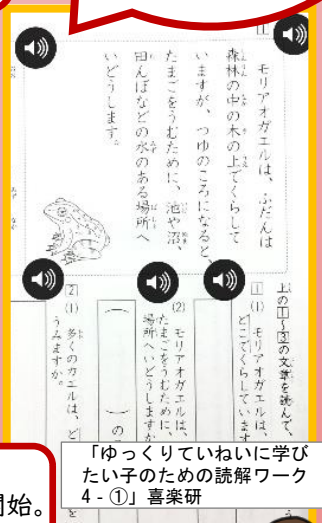 1
モリアオガエルは、ふだんは
森林の中の木の上でくらして
いますが、つゆのころになると、
たまごをうむために、池や沼、
田んぼなどの水のある場所へ
いどうします。
上の1〜3の文章を読んで、
1
(1) モリアオガエルは、
どこでくらしています
(2) モリアオガエルは、
たまごをうむために、
場所へいどうしますか
の
2
(1) 多くのカエルは、ど
うみますか。
開始。
「ゆっくりていねいに学び
たい子のための読解ワーク
4 - ①」喜楽研